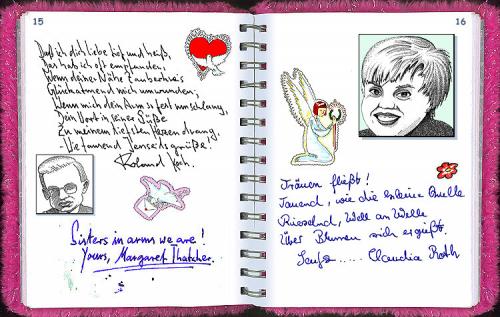 15
Daß ich dich liebe tief und heiß,
Das hab ich oft empfunden,
Wenn deiner Nähe Zauberkreis
Glückatmend mich umwunden,
Wenn mich dein Arm so fest umschlang,
Dein Wort in seiner Süße
Zu meinem tiefsten Herzen drang.
- Viel tausend Jenseitsgrüße!
Roland Koch.
Sisters in arms we are!
Yours, Margaret Thatcher.
16
Tränen fließt!
Tauend, wie die kleine Quelle
Rieselnd, Well an Welle
Über Blumen sich ergießt.
Seufz..... Claudia Roth